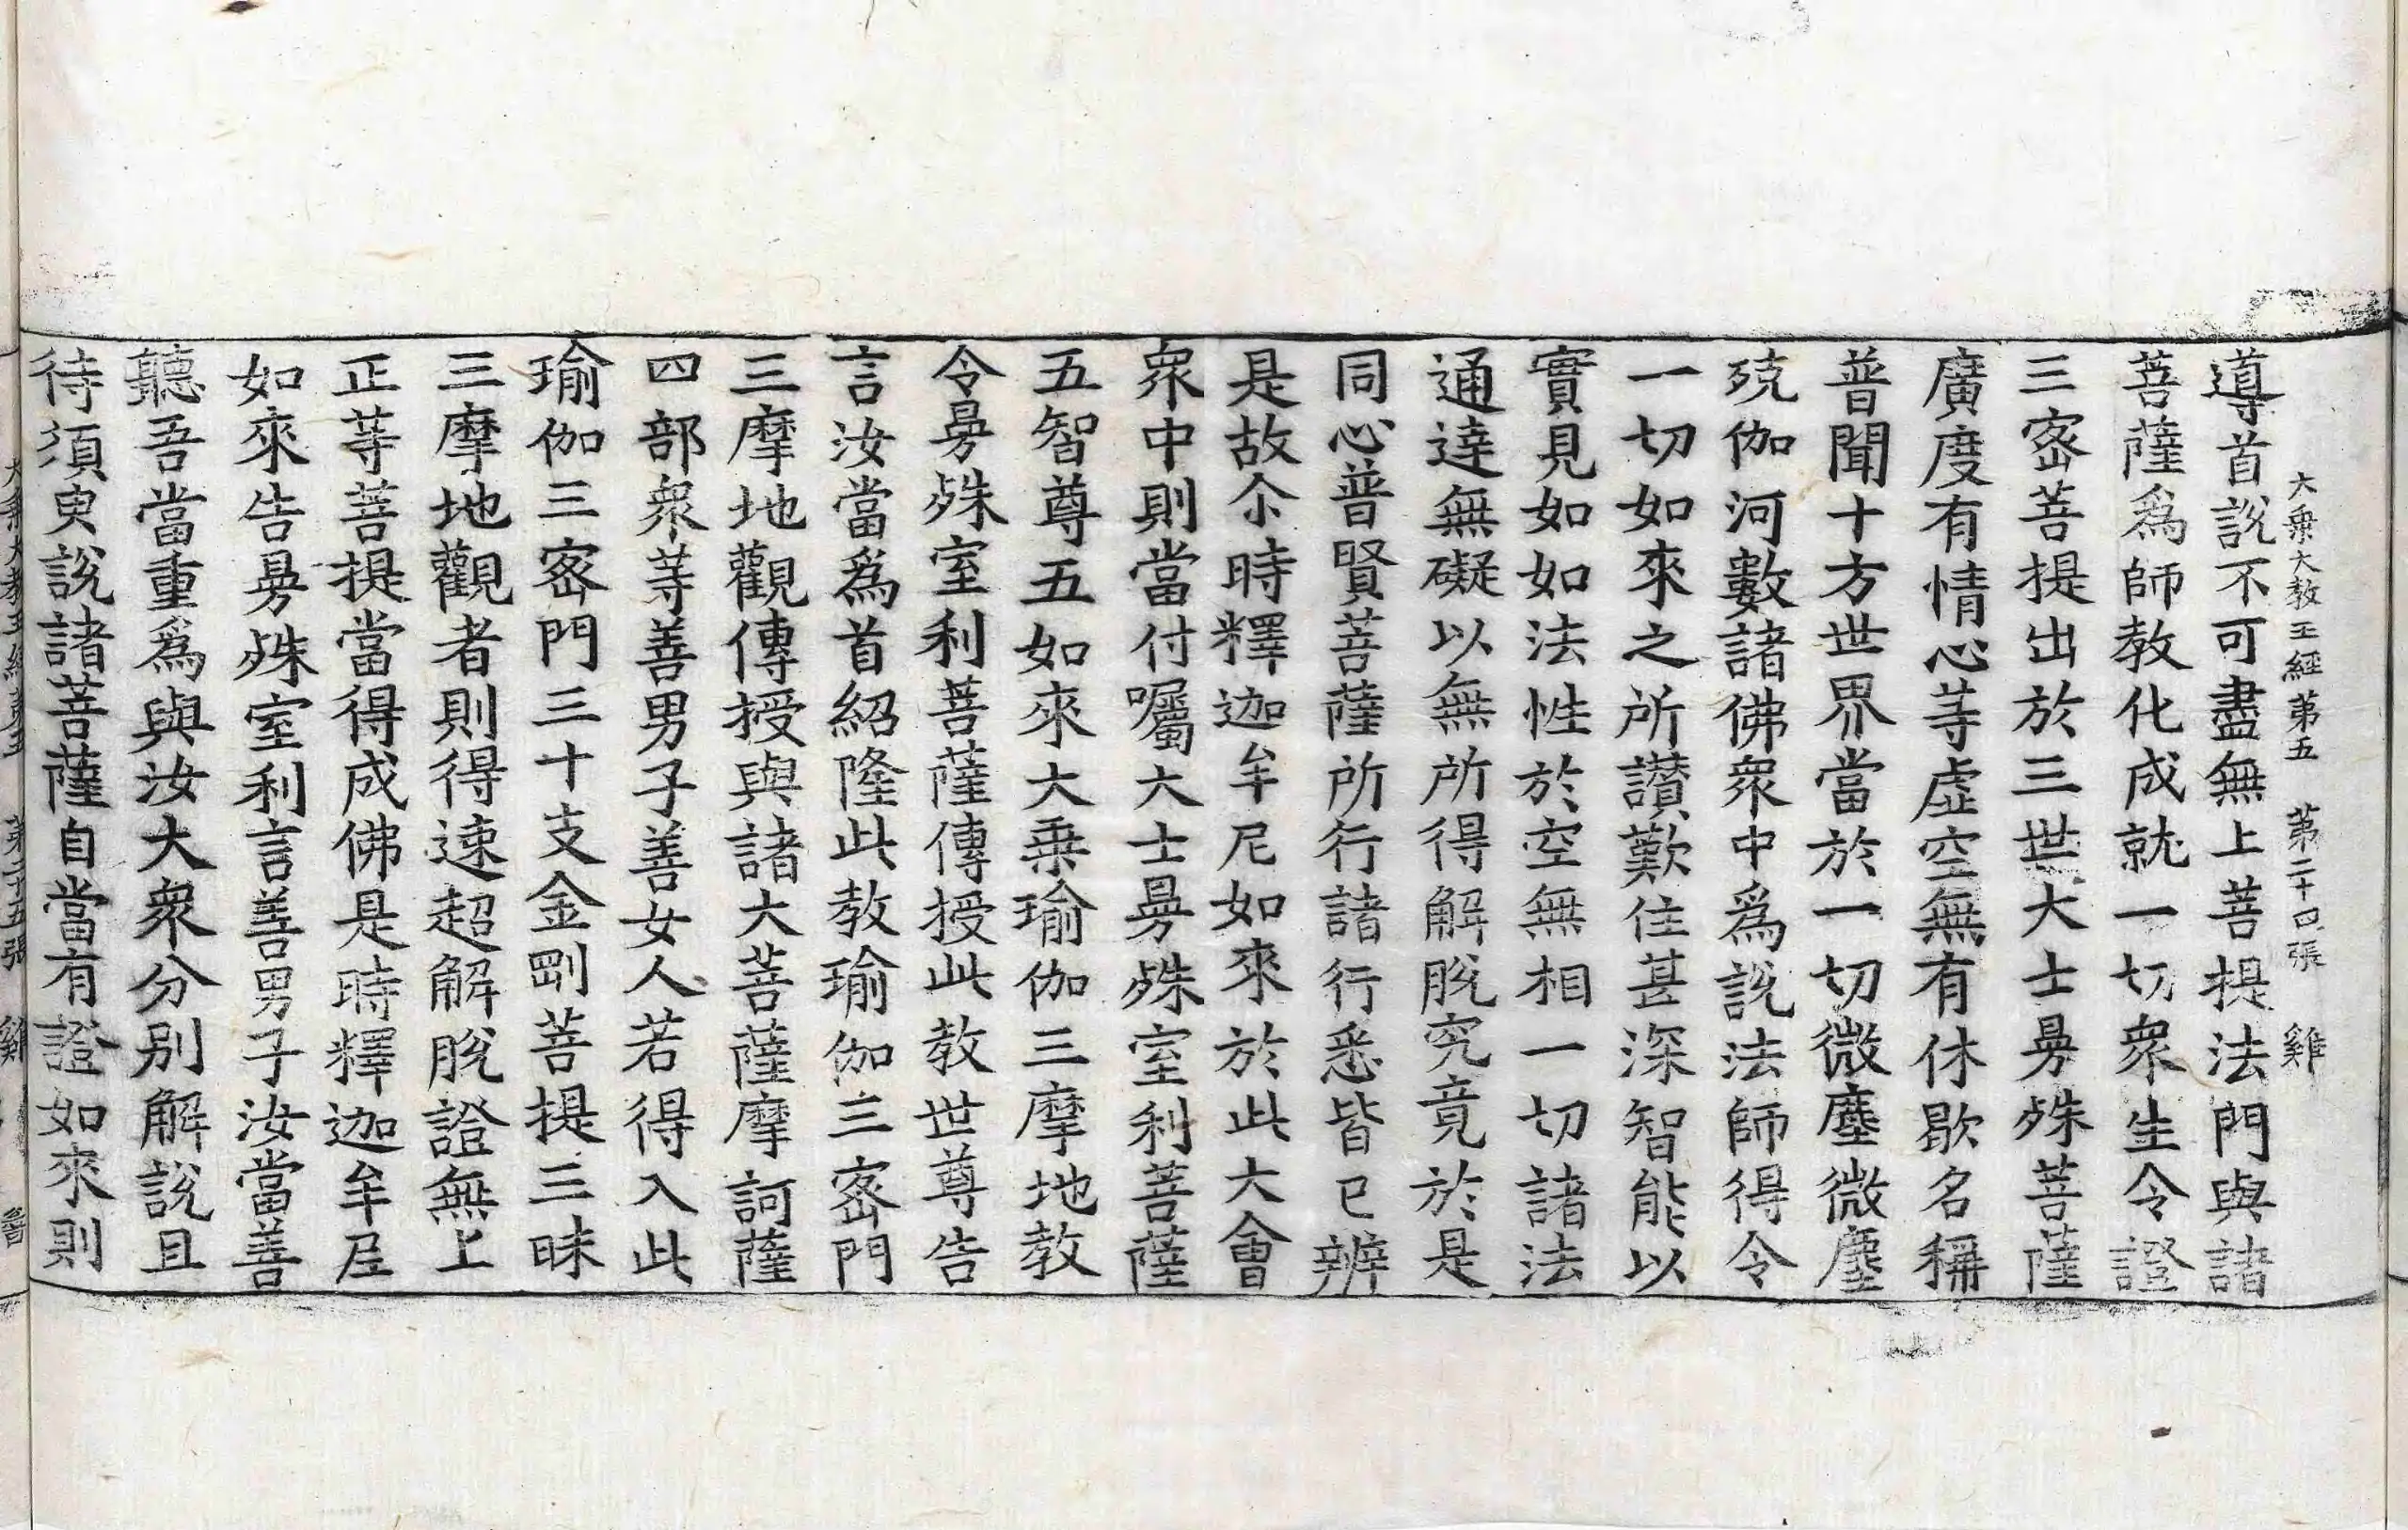 大乗大教王經第五　第二十四張　雞
導首說不可盡無上菩提法門與諸
菩薩爲師教化成就一切衆生令證
三密菩提出於三世大士曼殊菩薩
廣度有情心等虛空無有休歇名稱
普聞十方世界當於一切微塵微塵
殑伽河數諸佛衆中爲說法師得令
一切如來之所讃歎住甚深智能以
實見如如法性於空無相一切諸法
通達無礙以無所得解脫究竟於是
同心普賢菩薩所行諸行悉皆已辨
是故尒時釋迦牟尼如來於此大會
衆中則當付囑大士曼殊室利菩薩
五智尊五如來大乗瑜伽三摩地教
令曼殊室利菩薩傳授此教世尊告
言汝當爲首紹隆此教瑜伽三密門
三摩地觀傳授與諸大菩薩摩訶薩
四部衆等善男子善女人若得入此
瑜伽三密門三十支金剛菩提三昧
三摩地觀者則得速超解脫證無上
正等菩提當得成佛是時釋迦牟尼
如來告曼殊室利言善男子汝當善
聽吾當重爲與汝大衆分別解說且
待須臾說諸菩薩自當有證如來則
大乗大教王經第五　第二十五張　雞